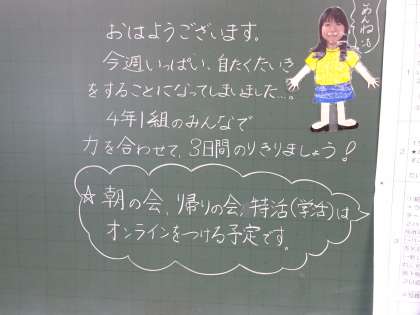 おはようございます。
今週いっぱい、自たくたいき
をすることになってしまいました…。
4年1組のみんなで
力を合わせて、3日間のりきりましょう！
☆朝の会、帰りの会、特活(学活)は
オンラインをつける予定です。